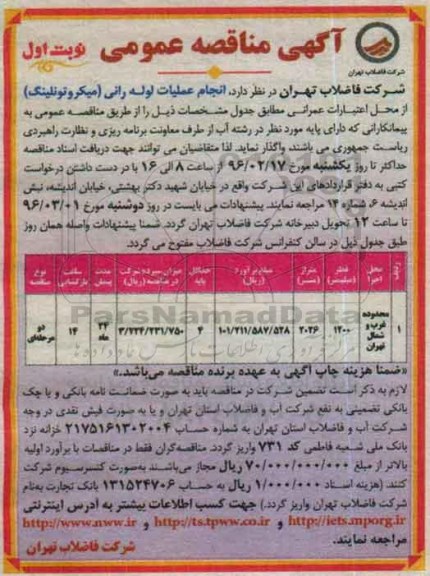 آگهی مناقصه عمومی
نوبت اول
شرکت فاضلاب تهران
شرکت فاضلاب تهران در نظر دارد، انجام عملیات لوله رانی (میکروتونلینگ)
از محل اعتبارات عمرانی مطابق جدول مشخصات ذیل را از طریق مناقصه عمومی به
پیمانکارانی که دارای پایه مورد نظر در رشته آب از طرف معاونت برنامه ریزی و نظارت راهبردی
ریاست جمهوری می باشند، واگذار نماید. لذا متقاضیان می توانند جهت دریافت اسناد مناقصه
حداکثر تا روز یکشنبه مورخ ۹۶/۰۲/۱۷ از ساعت ۸ الی ۱۶ با در دست داشتن درخواست
کتبی به دفتر قراردادهای این شرکت واقع در خیابان شهید دکتر بهشتی، خیابان اندیشه، نبش
اندیشه ۶، شماره ۱۴ مراجعه نمایند. پیشنهادات می بایست در روز دوشنبه مورخ ۹۶/۰۳/۰۱
تا ساعت ۱۲ تحویل دبیرخانه شرکت فاضلاب تهران گردد. ضمنا پیشنهادات واصله همان روز
طبق جدول ذیل در سالن کنفرانس شرکت فاضلاب مفتوح می گردد.
ردیف محل اجرا قطر (میلیمتر) متراژ (متر) مبلغ برآورد (ریال) حداقل پایه میزان سپرده شرکت در مناقصه (ریال) مدت پیمان ساعت بازگشایی نوع مناقصه
۱ محدوده غرب و شمال تهران ۱۲۰۰ ۲۰۳۶ ۱۰۱/۲۱۱/۵۸۷/۵۲۸ ۴ ۳/۲۲۴/۲۳۱/۷۵۰ ۲۴ ماه ۱۴ دو مرحله‌ای
ParsNamadData
«ضمنا هزینه چاپ آگهی به عهده برنده مناقصه می‌باشد.»
لازم به ذکر است تضمین شرکت در مناقصه باید به صورت ضمانت نامه بانکی و یا چک
بانکی تضمینی به نفع شرکت آب و فاضلاب استان تهران و یا به صورت فیش نقدی در وجه
شرکت آب و فاضلاب استان تهران به شماره حساب ۲۱۷۵۱۶۱۳۰۲۰۰۴ خزانه نزد
بانک ملی شعبه فاطمی کد ۷۳۱ واریز گردد. مناقصه‌گران فقط در مناقصات با برآورد اولیه
بالاتر از مبلغ ۷۰/۰۰۰/۰۰۰/۰۰۰ ریال مجاز می‌باشند به‌صورت کنسرسیوم شرکت
کنند. (هزینه اسناد ۱/۰۰۰/۰۰۰ ریال به حساب ۱۳۱۵۲۴۷۰۶ بانک تجارت به‌نام
شرکت فاضلاب تهران واریز گردد.) جهت کسب اطلاعات بیشتر به آدرس اینترنتی
http://iets.mporg.ir و http://ts.tpww.co.ir و http://www.nww.ir
مراجعه نمایند.
شرکت فاضلاب تهران